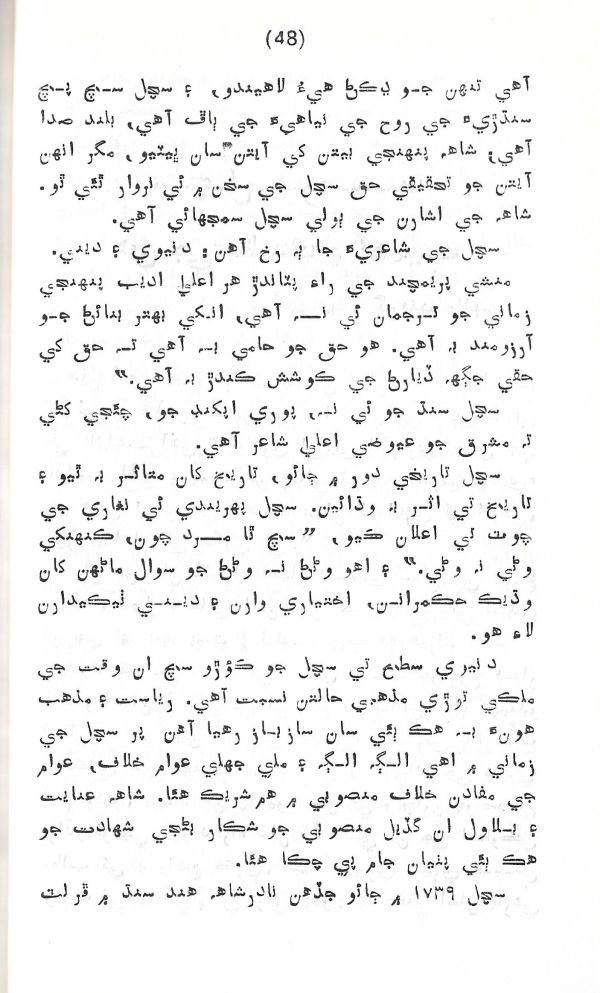 (48)
آهي تنهن جو ڍڪڻ هيءُ لاهيندو، ۽ سچل سچ پچ
سنڌڙيءَ جي روح جي نياهيءَ جي ٻاڦ آهي، بلند صدا
آهي؛ شاهه پنهنجي بيتن کي آيتن" سان ڀيٽيو، مگر انهن
آيتن جو تحقيقي حق سچل جي سخن ۾ ئي نروار ٿئي ٿو.
شاهه جي اشارن جي ٻولي سچل سمجهائي آهي.
سچل جي شاعريءَ جا ٻه رخ آهن: دنيوي ۽ ديني.
منشي پريمچند جي راءِ پٽاندڙ هر اعليٰ اديب پنهنجي
زماني جو ترجمان ئي نه آهي، انکي بهتر بنائڻ جو
آرزومند به آهي. هو حق جو حامي به آهي ته حق کي
حقي جڳهه ڏيارڻ جي ڪوشش ڪندڙ به آهي."
سچل سنڌ جو ئي نه، پوري اپکنڊ جو، چئجي کڻي
ته مشرق جو عيوضي اعليٰ شاعر آهي.
سچل تاريخي دور ۾ ڄائو، تاريخ کان متاثر به ٿيو ۽
تاريخ تي اثر به وڌائين. سچل پهريندي ئي نغاري جي
چوٽ تي اعلان ڪيو، "سچ ٿا مرد چون، ڪنهنکي
وڻي نه وڻي." ۽ اهو وڻڻ نه وڻڻ جو سوال ماڻهن کان
وڌيڪ حڪمرانن، اختياري وارن ۽ ديني ٺيڪيدارن
لاءِ هو.
دنيوي سطح تي سچل جو ڪوڙو سچ ان وقت جي
ملڪي توڙي مذهبي حالتن نسبت آهي. رياست ۽ مذهب
هونءَ به هڪ ٻئي سان سازباز رهيا آهن پر سچل جي
زماني ۾ اهي الڳ الڳ ۽ ملي جهلي عوام خلاف، عوام
جي مفادن خلاف منصوبي ۾ هم شريڪ هئا. شاهه عنايت
۽ بلاول ان گڏيل منصوبي جو شڪار بڻجي شهادت جو
هڪ ٻئي پٺيان جام پي چڪا هئا.
سچل ١٧٣٩ ۾ ڄائو جڏهن نادرشاهه هند سنڌ ۾ ڦرلٽ